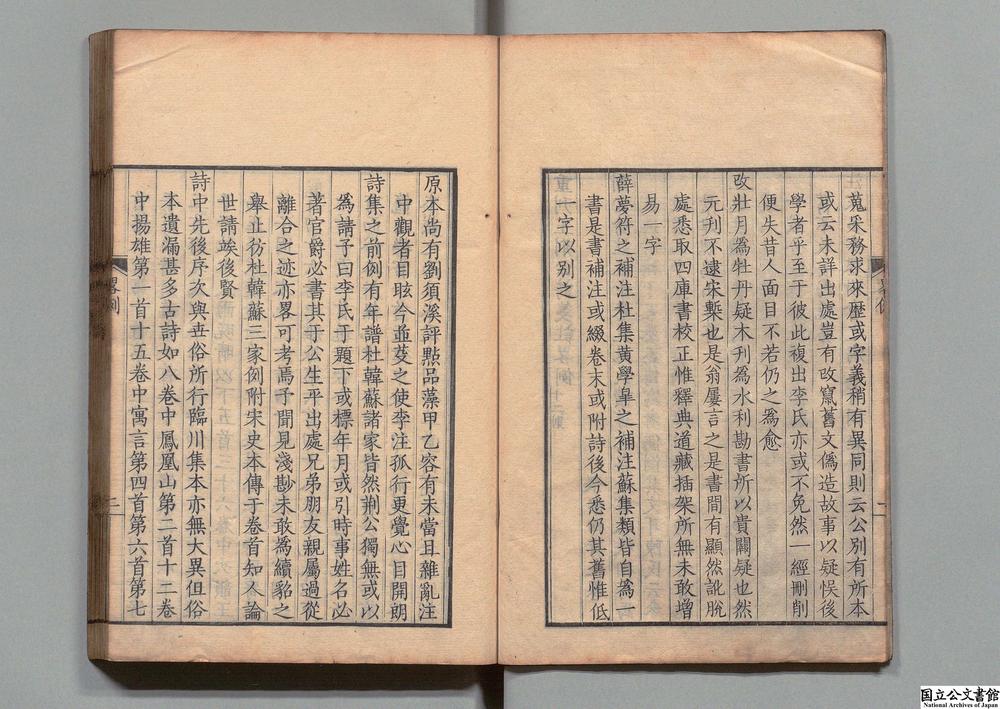 蒐采務求來歷或字義稍有異同則云公別有所本
或云未詳出處豈有改竄舊文僞造故事以疑悞後
學者乎至于彼此複出李氏亦或不免然一經刪削
便失昔人面目不若仍之為愈
改壯月為牡丹疑木刋為水利勘書所以貴闕疑也然
元刋不逮宋槧也是翁屢言之是書間有顯然訛脫
處悉取四庫書校正惟釋典道藏插架所無未敢增
易一字
薛夢符之補注杜集黃學臯之補注蘇集類皆自為一
書是書補注或綴卷末或附詩後今悉仍其舊惟低
一字以別之
略例
二
原本尚有劉須溪評點品藻甲乙容有未當且雜亂注
中觀者目眩今並芟之使李注孤行更覺心目開朗
詩集之前例有年譜杜韓蘇諸家皆然荆公獨無或以
為請予曰李氏于題下或標年月或引時事姓名必
著官爵必書其于公生平出處兄弟朋友親屬過從
離合之迹亦畧可考焉予聞見淺尠未敢為續貂之
舉止彷杜韓蘇三家例附宋史本傳于卷首知人論
世請竢後賢
詩中先後序次與世俗所行臨川集本亦無大異但俗
本遺漏甚多古詩如八卷中鳳凰山第二首十二卷
中揚雄第一首十五卷中寓言第四首第六首第七
畧例
三
国立公文書館
National Archives of Japan